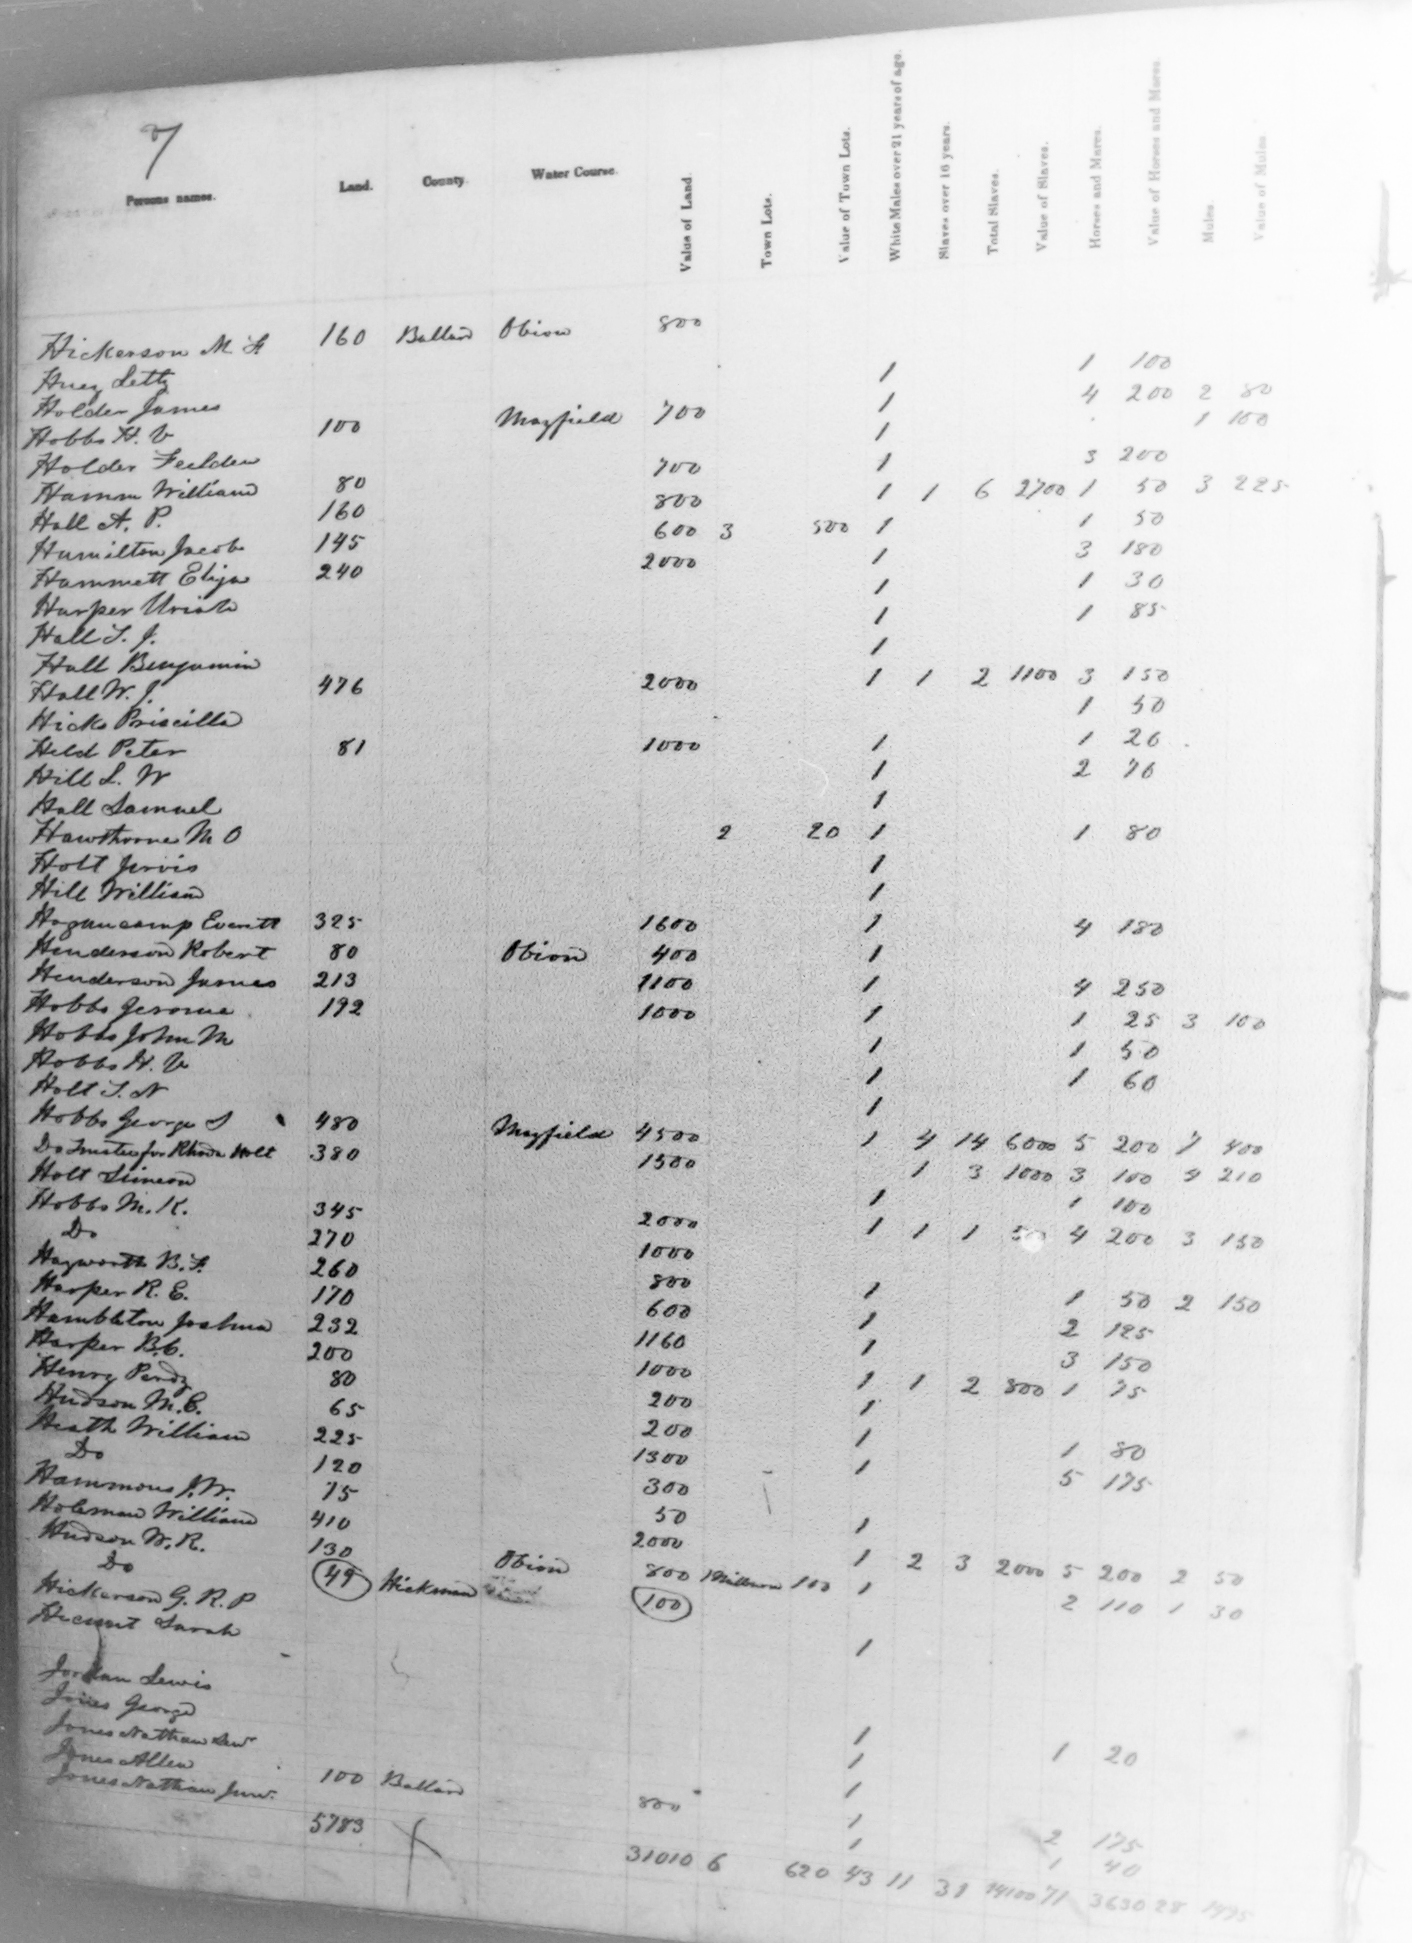 7
Persons names. Land. County. Water Course. Value of Land. Town Lots. Value of Town Lots. White Males over 21 years of age. Slaves over 16 years. Total Slaves. Value of Slaves. Horses and Mares. Value of Horses and Mares. Mules. Value of Mules.
Hickerson M 160 Ballard Obion 800 1 100
Huey Letty 1 4 200 2 80
Holder James 1 1 100
Hobbs H. V 100 Mayfield 700 1
Holder Feelden 1 3 200
Hamm William 80 700 1 1 6 2700 1 50 3 225
Hall A. P. 160 800 1 1 50
Hamilton Jacob 145 600 3 500 1 3 180
Hammett Elija 240 2000 1 1 30
Harper Uriah 1 1 85
Hall T. J. 1
Hall Benjamin
Hall W. J. 476 2000 1 1 2 1100 3 150
Hicks Priscilla 1 50
Held Peter 81 1000 1 1 20
Hill L. W 1 2 70
Hall Samuel 1
Hawthorne M O 2 20 1 1 80
Holt Jervis 1
Hill William 1
Hagancamp Everett 325 1600 1 4 180
Henderson Robert 80 Obion 400 1
Henderson James 213 1100 1 4 250
Hobbs Jerome 192 1000 1 1 25 3 100
Hobbs John M 1 1 50
Hobbs H. V 1 1 60
Holt T. N 1
Hobbs George S 480 Mayfield 4500 1 4 14 6000 5 200 7 400
Do Trustee for Rhoda Holt 380 1500 1 3 1000 3 100 4 210
Holt Simeon 1 1 100
Hobbs M. K. 345 2000 1 1 1 500 4 200 3 150
Do 270 1000
Hayworth B. F. 260 800 1 1 50 2 150
Harper R. E. 170 600 1 2 125
Hambleton Joshua 232 1160 1 3 150
Harper B. C. 200 1000 1 1 2 800 1 75
Henry Perdy 80 200 1
Hudson M. C. 65 200 1 1 80
Heath William 225 1300 1 5 175
Do 120 300
Hammons J. W. 75 50 1
Holeman William 410 2000 1 2 3 2000 5 200 2 50
Hudson W. R. 130 Obion 800 1 Milburn 100 1 2 110 1 30
Do 49 Hickman 100
Hickerson G. R. P 1
Sarah
Jordan Lewis 1
Jones George 1 1 20
Jones Nathan Senr 1
Jones Allen 1 2 175
Jones Nathan Junr. 100 Ballard 800 1 1 40
5783 31010 6 620 43 11 31 14100 71 3630 28 1495